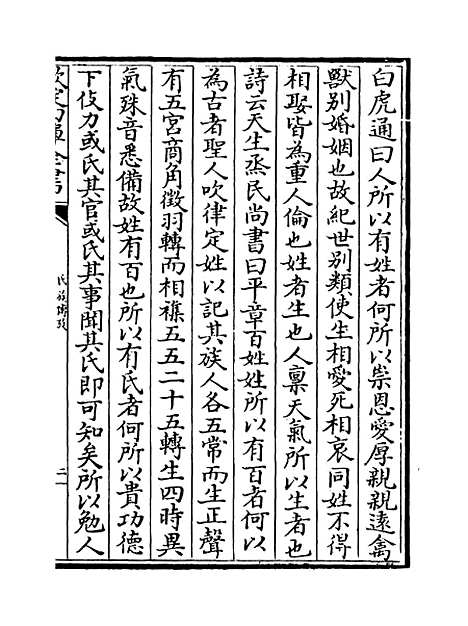 白虎通曰人所以有姓者何所以崇恩愛厚親親逺禽
獸别婚姻也故紀世别類使生相愛死相哀同姓不得
相娶皆為重人倫也姓者生也人禀天氣所以生者也
詩云天生烝民尚書曰平章百姓姓所以有百者何以
為古者聖人吹律定姓以記其族人各五常而生正聲
有五宫商角徵羽轉而相襍五五二十五轉生四時異
氣殊音悉備故姓有百也所以有氏者何所以貴功德
下伎力或氏其官或氏其事聞其氏即可知矣所以勉人
欽定四庫全書
氏族博攷